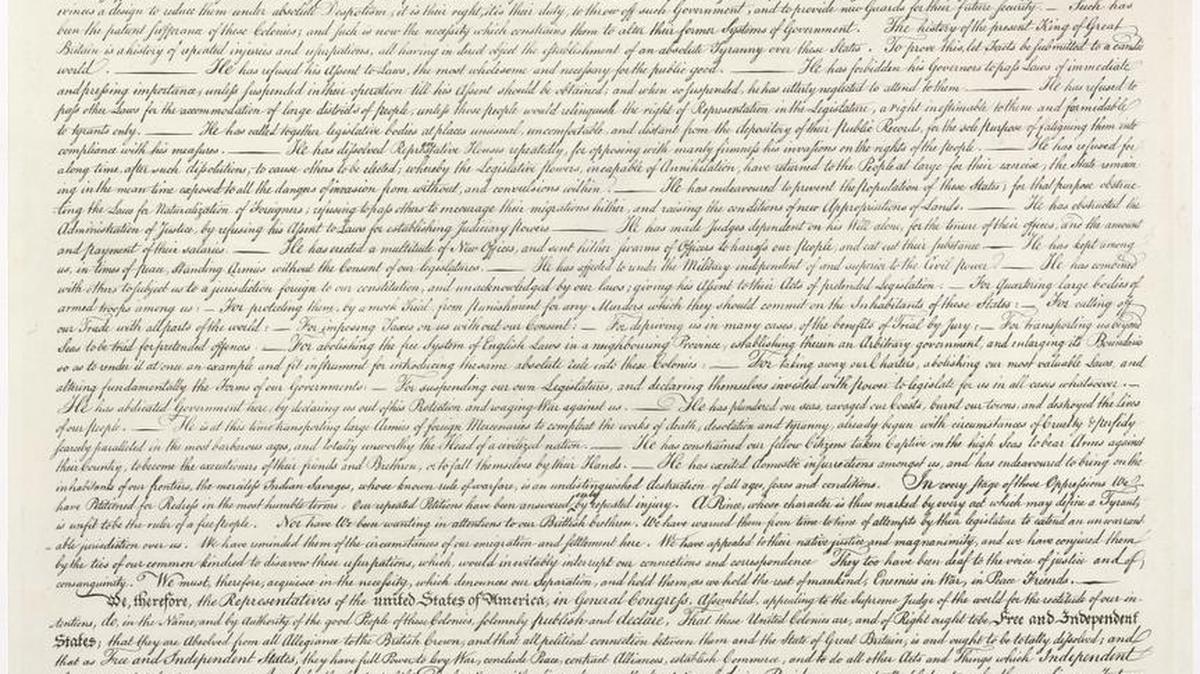 evinces a design to reduce them under absolute Despotism, it is their right, it is their duty, to throw off such Government, and to provide new Guards for their future security. — Such has
been the patient sufferance of these Colonies; and such is now the necessity which constrains them to alter their former Systems of Government. The history of the present King of Great
Britain is a history of repeated injuries and usurpations, all having in direct object the establishment of an absolute Tyranny over these States. To prove this, let Facts be submitted to a candid
world. — He has refused his Assent to Laws, the most wholesome and necessary for the public good. — He has forbidden his Governors to pass Laws of immediate
and pressing importance, unless suspended in their operation till his Assent should be obtained; and when so suspended, he has utterly neglected to attend to them. — He has refused to
pass other Laws for the accommodation of large districts of people, unless those people would relinquish the right of Representation in the Legislature, a right inestimable to them and formidable
to tyrants only. — He has called together legislative bodies at places unusual, uncomfortable, and distant from the depository of their public Records, for the sole purpose of fatiguing them into
compliance with his measures. — He has dissolved Representative Houses repeatedly, for opposing with manly firmness his invasions on the rights of the people. — He has refused for
a long time, after such dissolutions, to cause others to be elected; whereby the Legislative powers, incapable of Annihilation, have returned to the People at large for their exercise; the State remain
ing in the mean time exposed to all the dangers of invasion from without, and convulsions within. — He has endeavoured to prevent the population of these States; for that purpose obstruc-
ting the Laws for Naturalization of Foreigners; refusing to pass others to encourage their migrations hither, and raising the conditions of new Appropriations of Lands. — He has obstructed the
Administration of Justice, by refusing his Assent to Laws for establishing Judiciary powers — He has made Judges dependent on his Will alone, for the tenure of their offices, and the amount
and payment of their salaries. — He has erected a multitude of New Offices, and sent hither swarms of Officers to harrass our people, and eat out their substance — He has kept among
us, in times of peace, Standing Armies without the Consent of our legislatures. — He has affected to render the Military independent of and superior to the Civil power. — He has combined
with others to subject us to a jurisdiction foreign to our constitution, and unacknowledged by our laws; giving his Assent to their Acts of pretended Legislation: — For Quartering large bodies of
armed troops among us: — For protecting them, by a mock Trial, from punishment for any Murders which they should commit on the Inhabitants of these States: — For cutting off
our Trade with all parts of the world: — For imposing Taxes on us without our Consent: — For depriving us in many cases, of the benefits of Trial by Jury: — For transporting us beyond
Seas to be tried for pretended offences — For abolishing the free System of English Laws in a neighbouring Province, establishing therein an Arbitrary government, and enlarging its Boundaries
so as to render it at once an example and fit instrument for introducing the same absolute rule into these Colonies: — For taking away our Charters, abolishing our most valuable Laws, and
altering fundamentally the Forms of our Governments: — For suspending our own Legislatures, and declaring themselves invested with power to legislate for us in all cases whatsoever. —
He has abdicated Government here, by declaring us out of his Protection and waging War against us. — He has plundered our seas, ravaged our Coasts, burnt our towns, and destroyed the lives
of our people. — He is at this time transporting large Armies of foreign Mercenaries to compleat the works of death, desolation and tyranny, already begun with circumstances of Cruelty & perfidy
scarcely paralleled in the most barbarous ages, and totally unworthy the Head of a civilized nation. — He has constrained our fellow Citizens taken Captive on the high Seas to bear Arms against
their Country, to become the executioners of their friends and Brethren, or to fall themselves by their Hands. — He has excited domestic insurrections amongst us, and has endeavoured to bring on the
inhabitants of our frontiers, the merciless Indian Savages, whose known rule of warfare, is an undistinguished destruction of all ages, sexes and conditions. In every stage of these Oppressions We
have Petitioned for Redress in the most humble terms: Our repeated Petitions have been answered only by repeated injury. A Prince, whose character is thus marked by every act which may define a Tyrant,
is unfit to be the ruler of a free people. Nor have We been wanting in attentions to our Brittish brethren. We have warned them from time to time of attempts by their legislature to extend an unwarrant-
able jurisdiction over us. We have reminded them of the circumstances of our emigration and settlement here. We have appealed to their native justice and magnanimity, and we have conjured them
by the ties of our common kindred to disavow these usurpations, which, would inevitably interrupt our connections and correspondence They too have been deaf to the voice of justice and of
consanguinity. We must, therefore, acquiesce in the necessity, which denounces our Separation, and hold them, as we hold the rest of mankind, Enemies in War, in Peace Friends. —
We, therefore, the Representatives of the united States of America, in General Congress, Assembled, appealing to the Supreme Judge of the world for the rectitude of our in-
tentions, do, in the Name, and by Authority of the good People of these Colonies, solemnly publish and declare, That these United Colonies are, and of Right ought to be Free and Independent
States; that they are Absolved from all Allegiance to the British Crown, and that all political connection between them and the State of Great Britain, is and ought to be totally dissolved; and
that as Free and Independent States, they have full Power to levy War, conclude Peace, contract Alliances, establish Commerce, and to do all other Acts and Things which Independent